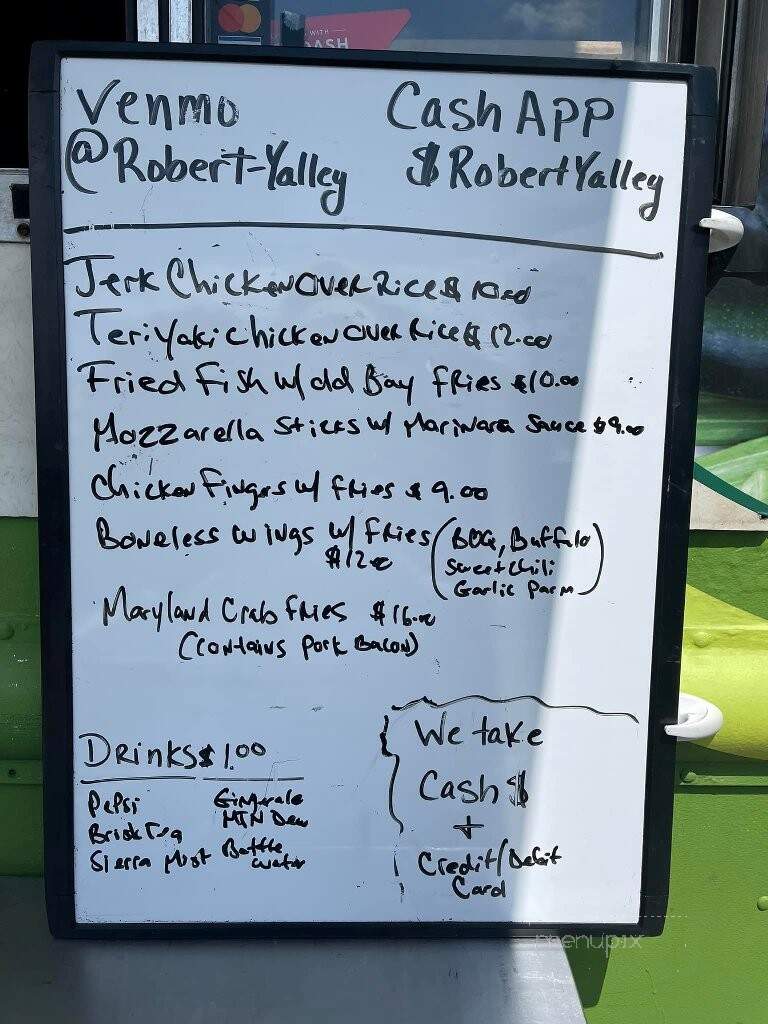 WITH
DASH
Venmo Cash App
@Robert-Yalley $RobertYalley
Jerk Chicken Over Rice $ 10.00
Teriyaki Chicken Over Rice $ 12.00
Fried Fish w/ Old Bay Fries $10.00
Mozzarella Sticks w/ Marinara Sauce $9.00
Chicken Fingers w/ Fries $ 9.00
Boneless Wings w/ Fries (BBQ, Buffalo
$12.00 Sweet Chili
Garlic Parm)
Maryland Crab Fries $16.00
(Contains Pork Bacon)
Drinks $1.00
Pepsi Gingerale
Brisk Tea MTN Dew
Sierra Mist Bottle
Water
We take
Cash $
+
Credit/Debit
Card
menupix